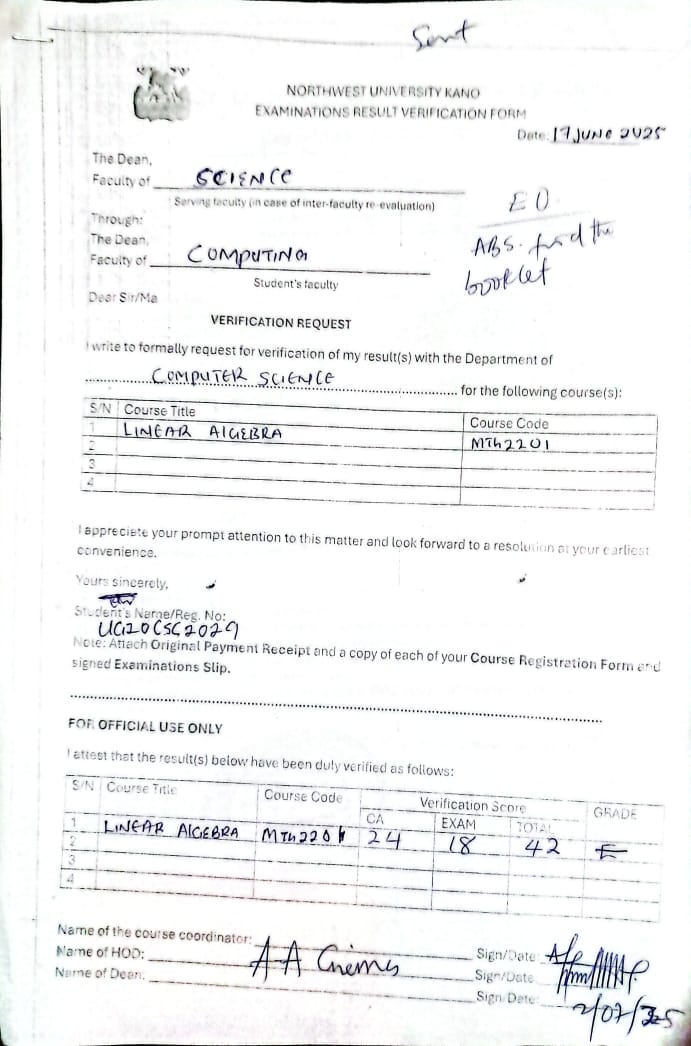 Sent
NORTHWEST UNIVERSITY KANO
EXAMINATIONS RESULT VERIFICATION FORM
Date: 17 JUNE 2025
The Dean,
Faculty of SCIENCE
Serving faculty (in case of inter-faculty re-evaluation)
Through:
The Dean,
Faculty of COMPUTING
Student's faculty
EO
ABS. find the
booklet
Dear Sir/Ma
VERIFICATION REQUEST
I write to formally request for verification of my result(s) with the Department of
COMPUTER SCIENCE for the following course(s):
S/N Course Title Course Code
1 LINEAR ALGEBRA MTH2201
2
3
4
I appreciate your prompt attention to this matter and look forward to a resolution at your earliest
convenience.
Yours sincerely,
Student's Name/Reg. No:
UG20CSC2029
Note: Attach Original Payment Receipt and a copy of each of your Course Registration Form and
signed Examinations Slip.
FOR OFFICIAL USE ONLY
I attest that the result(s) below have been duly verified as follows:
S/N Course Title Course Code Verification Score GRADE
CA EXAM TOTAL
1 LINEAR ALGEBRA MTH2201 24 18 42 E
2
3
4
Name of the course coordinator: Sign/Date:
Name of HOD: A-A Sign/Date
Name of Dean: Sign/Date:
2/07/25